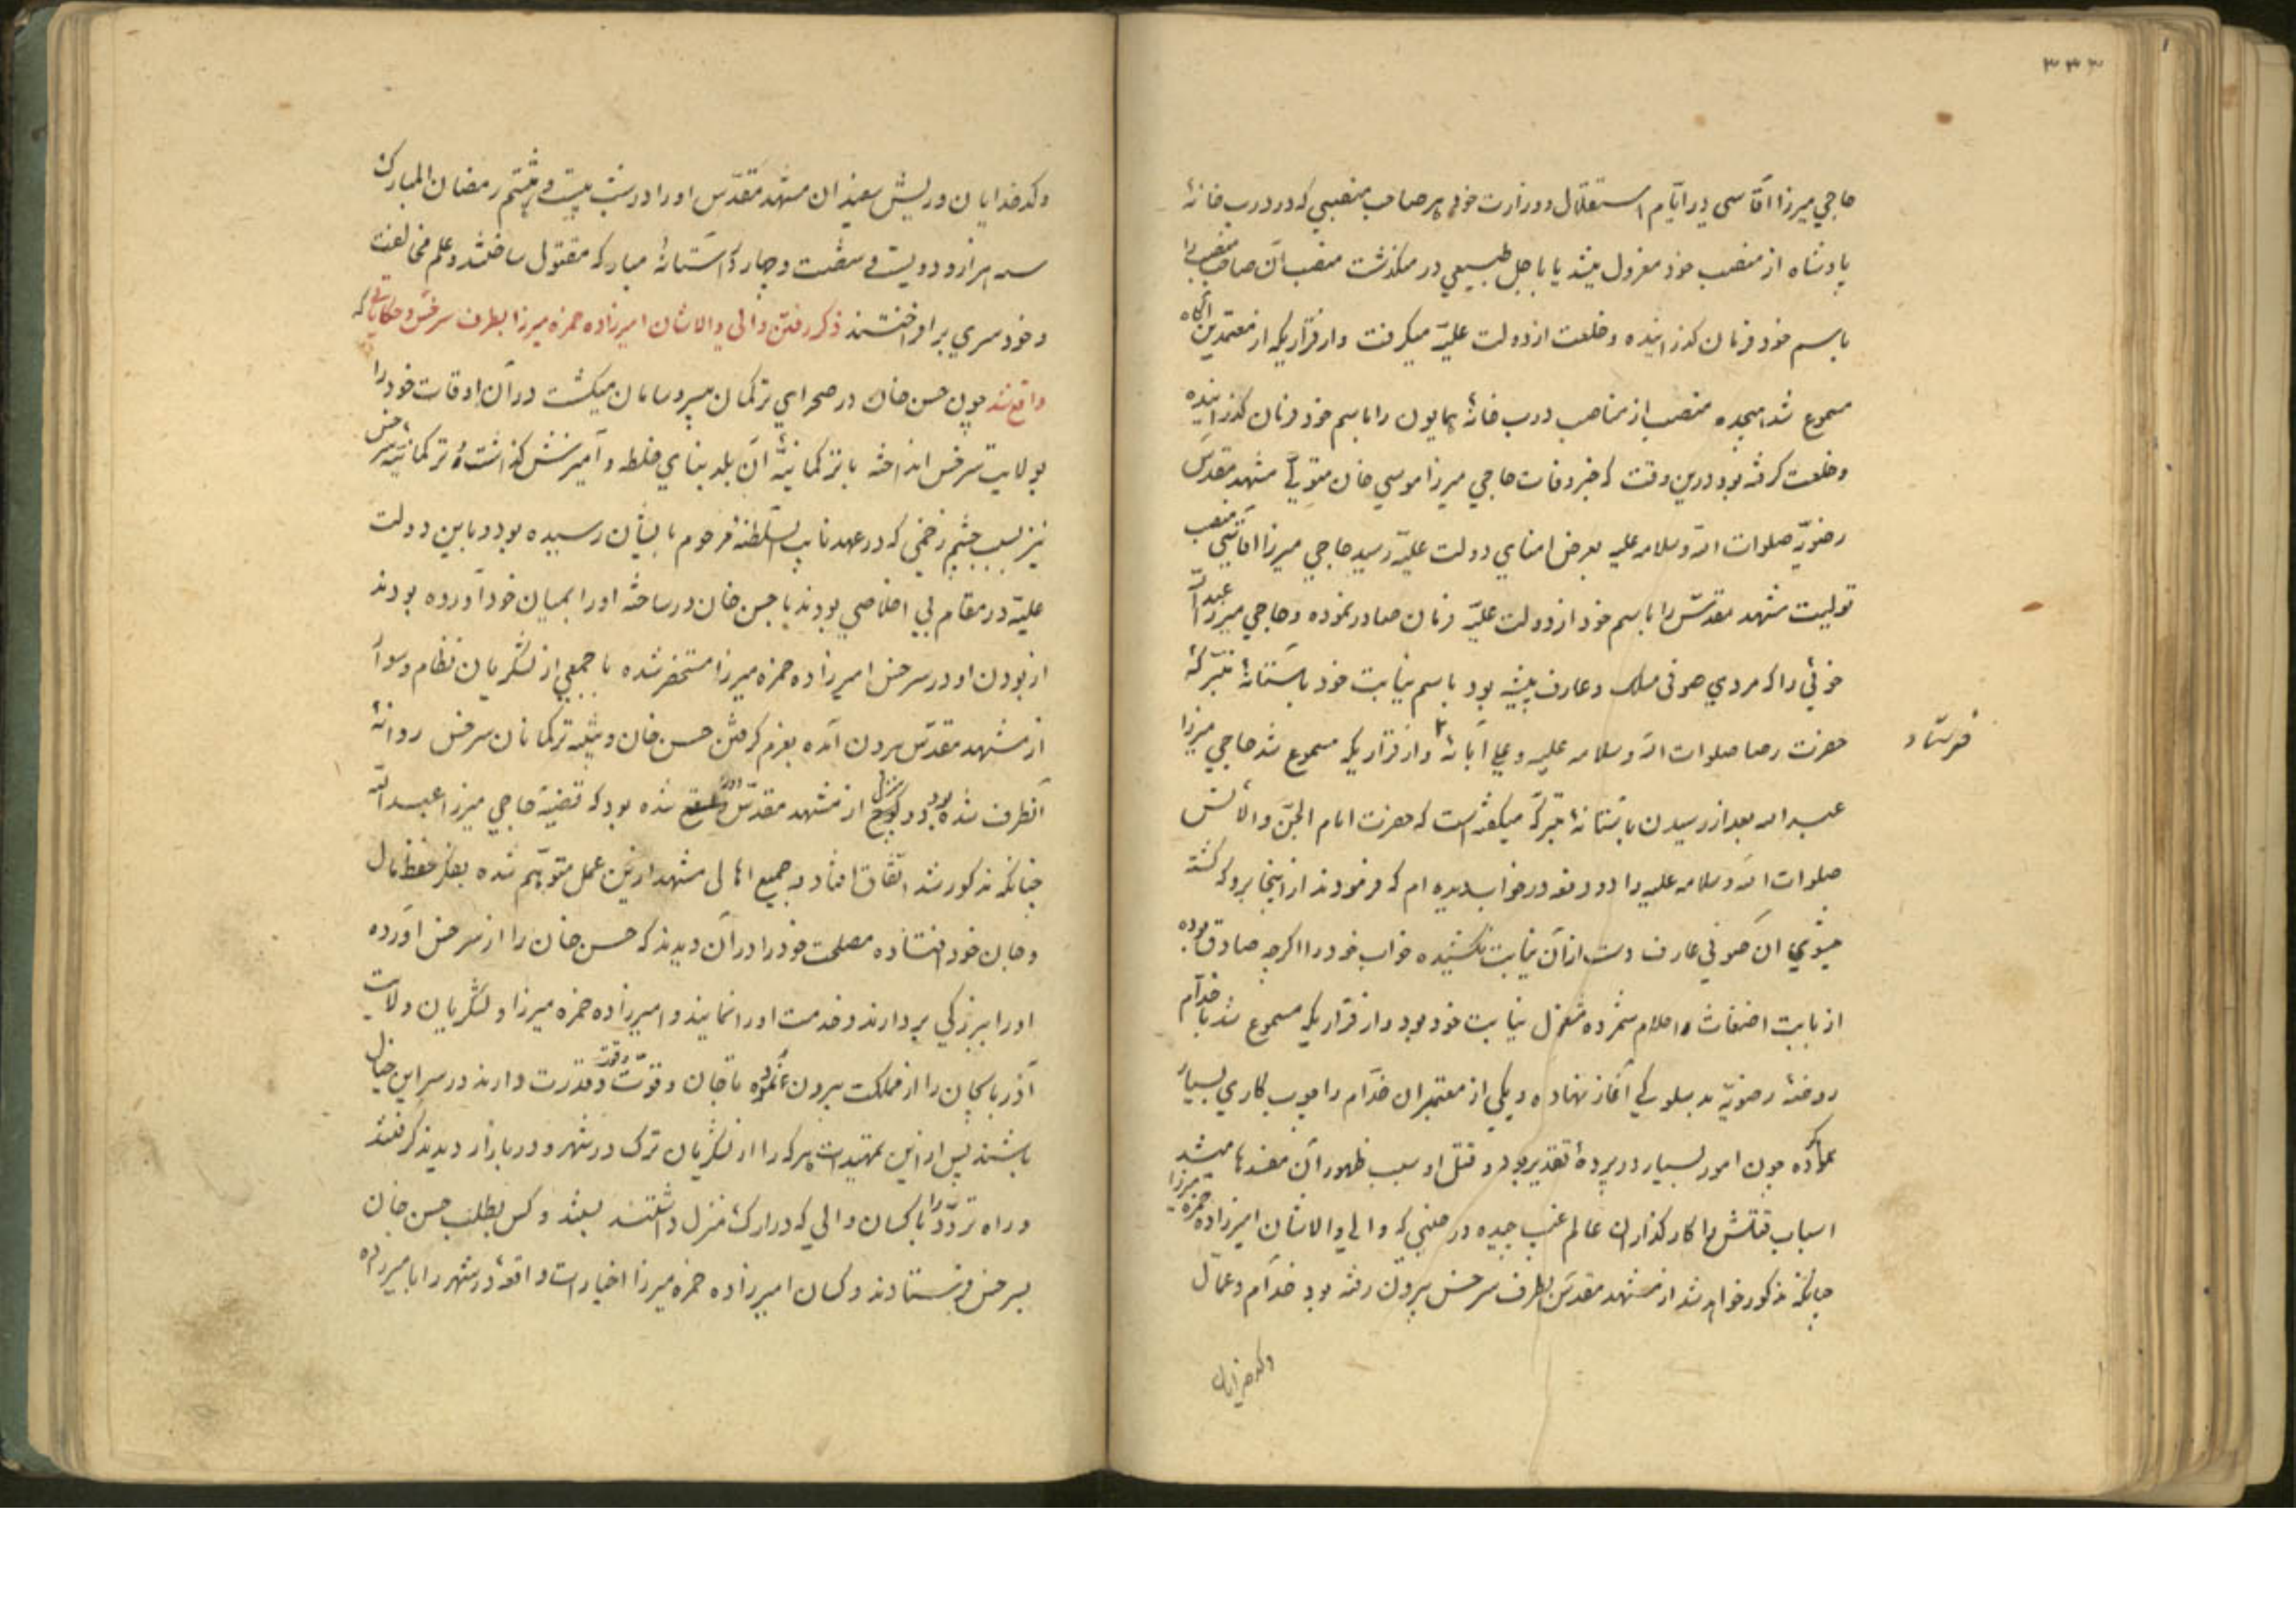 ۳۳۳
حاجی میرزا آقاسی در ایام استقلال و وزارت خود هر صاحب منصبی که در درب خانهٔ
پادشاه از منصب خود معزول میشد یا باجل طبیعی در میگذشت منصب آن صاحب منصب را
باسم خود فرمان گذرانیده و خلعت از دولت علیّه میگرفت و از قراریکه از معتمدین آگاه
مسموع شد هیجده منصب از مناصب درب خانهٔ همایون را باسم خود فرمان گذرانیده
و خلعت گرفته بود درین وقت که خبر وفات حاجی میرزا موسی خان متولّی مشهد مقدّس
رضویّه صلوات الله و سلامه علیه بعرض امنای دولت علیّه رسید حاجی میرزا آقاسی منصب
تولیت مشهد مقدّس را باسم خود از دولت علیّه فرمان صادر نموده و حاجی میرزا عبدالله
خوئی را که مردی صوفی مسلک و عارف پیشه بود باسم نیابت خود باستانهٔ متبرّکهٔ
حضرت رضا صلوات الله و سلامه علیه و علی آبائه و از قراریکه مسموع شد حاجی میرزا
فرستاد
عبدالله بعد از رسیدن باستانهٔ متبرّکه میگفته است که حضرت امام الجنّ والانس
صلوات الله و سلامه علیه را دو دفعه در خواب دیده ام که فرمودند از اینجا برو که کشته
میشوی آن صوفی عارف دست از آن نیابت نکشیده خواب خود را اگرچه صادق بوده
از بابت اضغاث و احلام شمرده مشغول نیابت خود بود و از قراریکه مسموع شد با خدّام
روضهٔ رضویّه بد سلوکی آغاز نهاده و یکی از معتبران خدّام را چوب کاری بسیار
نموده چون امور بسیار در پردهٔ تقدیر بود و قتل او سبب ظهور آن مفسدها میشد
اسباب قتلش را کارگذاران عالم غیب چیده در حینی که والی والاشان امیرزاده حمزه میرزا
چنانکه مذکور خواهد شد از مشهد مقدّس بطرف سرخس بیرون رفته بود خدّام و عمّال
وکدخدایان
وکدخدایان و ریش سفیدان مشهد مقدّس او را در شب بیست و هشتم رمضان المبارک
سنه هزار و دویست و شصت و چهار در آستانهٔ مبارکه مقتول ساختند و علم مخالفت
و خود سری برافراختند ذکر رفتن والی والاشان امیرزاده حمزه میرزا بطرف سرخس و حکایاتی که
واقع شد چون حسن خان در صحرای ترکمان بی سر و سامان میگشت در آن اوقات خود را
بولایت سرخس انداخته با ترکمانیّهٔ آن بلد بنای خلطه و آمیزش گذاشته و ترکمانیّهٔ سرخس
نیز بسبب چشم زخمی که در عهد نایب السّلطنهٔ مرحوم بایشان رسیده بود و با این دولت
علیّه در مقام بی اخلاصی بودند با حسن خان در ساخته او را بمیان خود آورده بودند
از بودن او در سرخس امیرزاده حمزه میرزا مستحضر شده با جمعی از لشکریان نظام و سواره
از مشهد مقدّس بیرون آمده بعزم گرفتن حسن خان و تنبیه ترکمانان سرخس روانهٔ
آنطرف شده بود و دو منزل از مشهد مقدّس دور شده بود که قضیّهٔ حاجی میرزا عبدالله
چنانکه مذکور شد اتّفاق افتاد و جمیع اهالی مشهد از این عمل متوهّم شده بفکر حفظ مال
و جان خود افتاده مصلحت خود را در آن دیدند که حسن خان را از سرخس آورده
او را ببزرگی بردارند و خدمت او را نمایند و امیرزاده حمزه میرزا و لشکریان ولایت
آذربایجان را از مملکت بیرون نموده تا جان و قوّت و قدرت دارند در سر این خیال
باشند پس از این تمهیدات هر که را از لشکریان ترک در شهر و در بازار دیدند گرفتند
و راه تردّد را با کسان والی که در ارک منزل داشتند بستند و کس بطلب حسن خان
بسرخس فرستادند و کسان امیرزاده حمزه میرزا اخبارات واقعهٔ در شهر را بامیرزاده